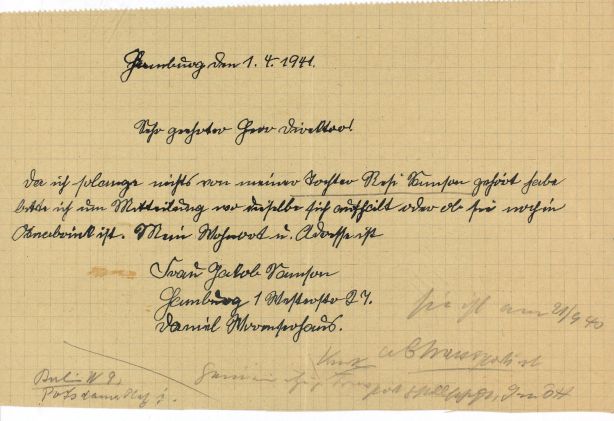 Hamburg den 1.4.1941.
Sehr geehrter Herr Direktor!
Da ich solange nichts von meiner Tochter Resi Samson gehört habe
bitte ich um Mitteilung wo dieselbe sich aufhält oder ob sie noch in
Osnabrück ist. Mein Wohnort u. Adresse ist
Frau Jakob Samson
Hamburg 1 Westerstr 27.
Daniel Wormserhaus.
Sie ist am 21/9 40
abtransportiert
Berlin W 9.
Potsdamer Platz 1.